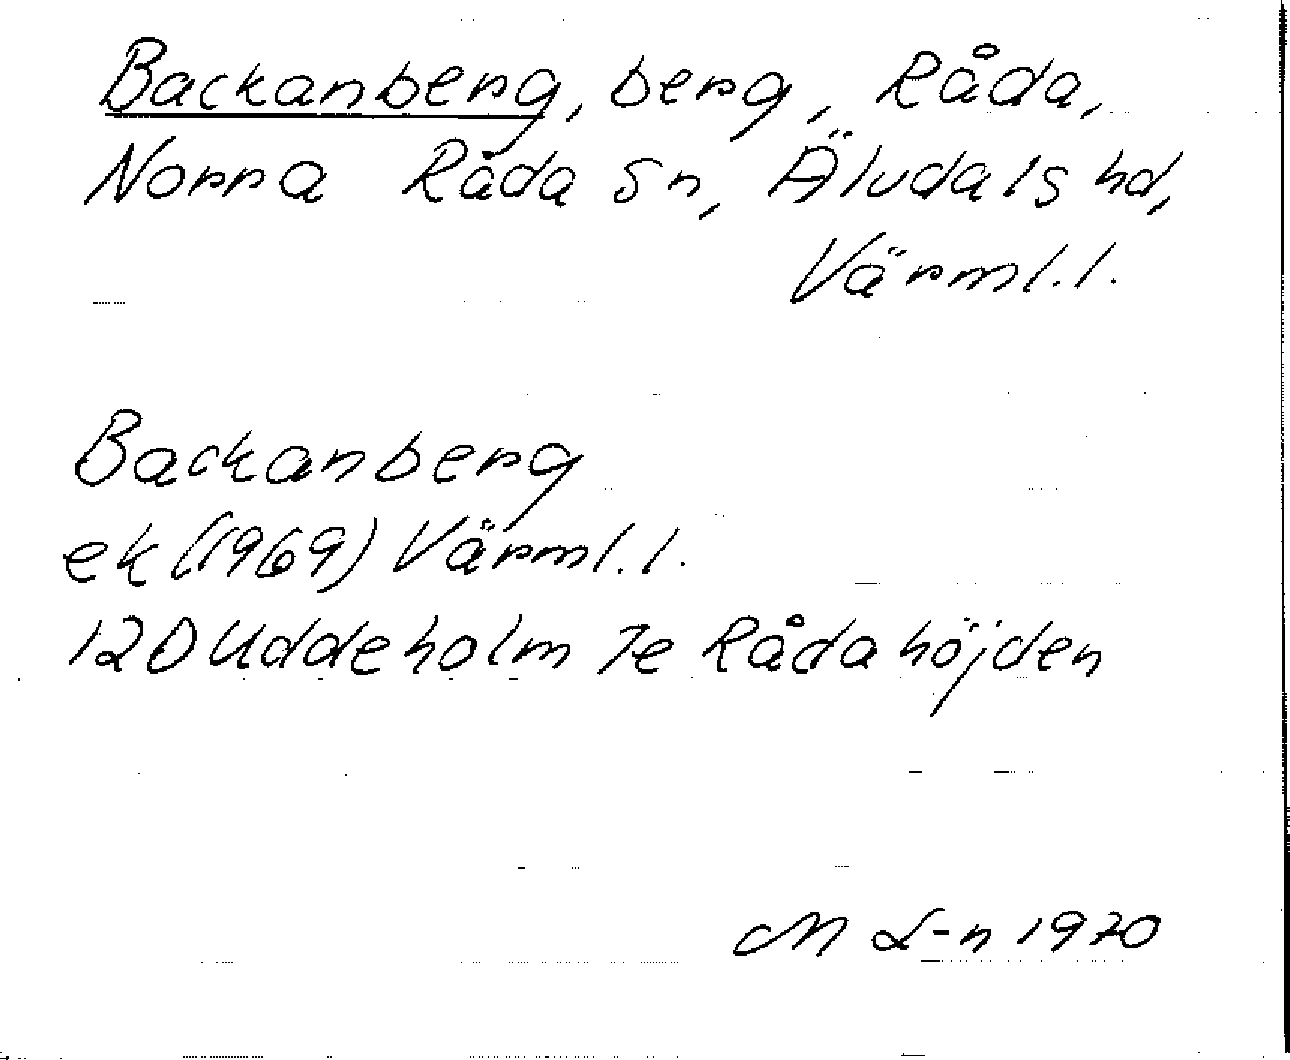 Backanberg, berg, Råda,
Norra Råda sn, Älvdals hd,
Värml. l.
Backanberg
ek (1969) Värml. l.
12D Uddeholm 7e Rådahöjden
M L-n 1970